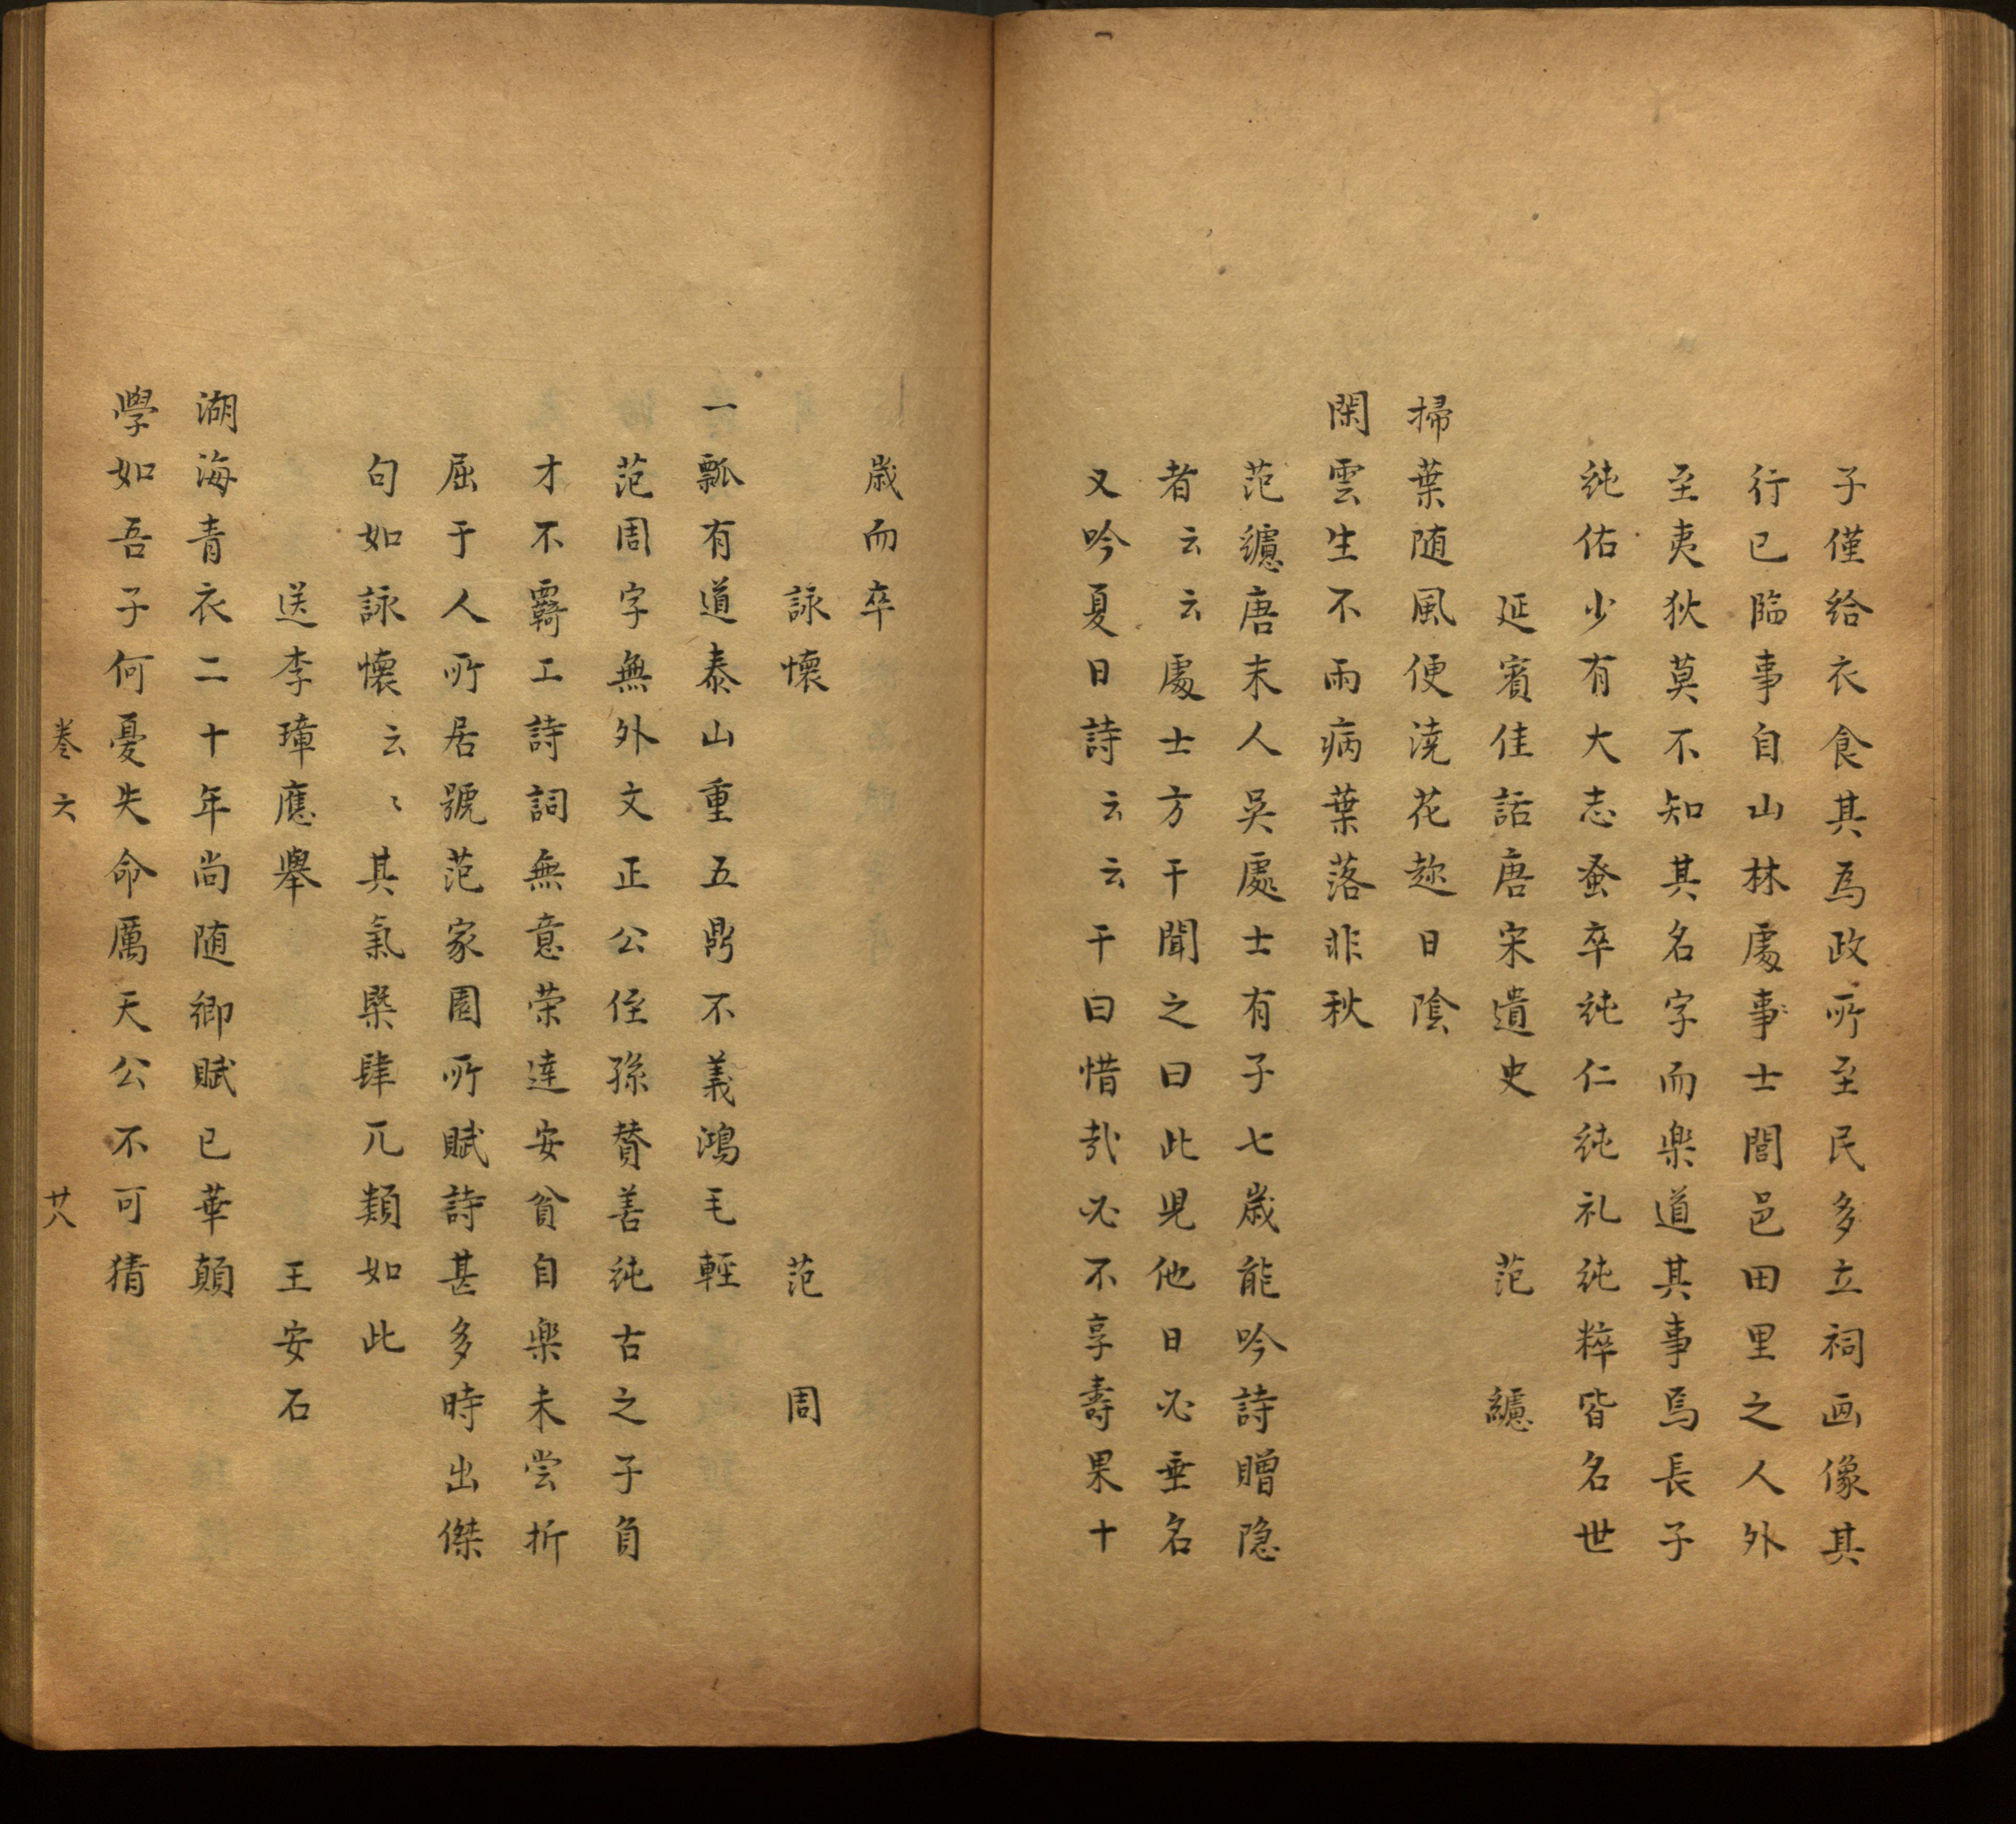 子僅給衣食其為政所至民多立祠画像其
行已臨事自山林處事士閭邑田里之人外
至夷狄莫不知其名字而楽道其事焉長子
純佑少有大志蚤卒純仁純礼純粹皆名世
延賓佳話唐宋遺史　范　繱
掃葉随風便澆花趂日陰
閑雲生不雨病葉落非秋
范繱唐末人吳處士有子七歲能吟詩贈隐
者云云處士方干聞之曰此児他日必垂名
又吟夏日詩云云干曰惜哉必不享壽果十
歲而卒
詠懷　范　周
一瓢有道泰山重五鼎不義鴻毛輕
范周字無外文正公侄孫賛善純古之子負
才不覊工詩詞無意荣達安貧自楽未尝折
屈于人所居號范家園所賦詩甚多時出傑
句如詠懷云〻其氣槩肆兀類如此
送李璋應舉　王安石
湖海青衣二十年尚随卿賦已華顛
學如吾子何憂失命厲天公不可猜
卷六　廿八